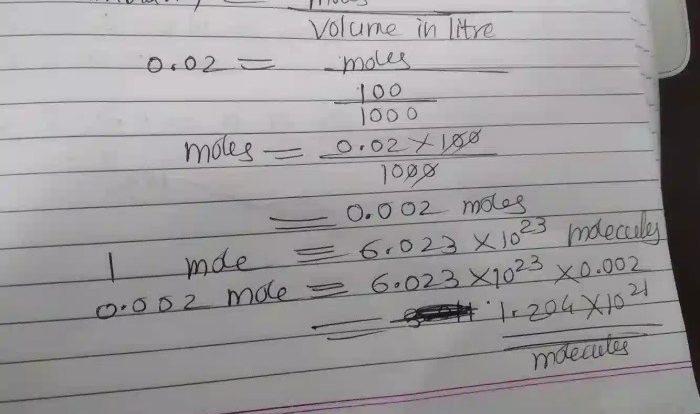 = moles
Volume in litre
0.02 = moles
100
1000
moles = 0.02 × 100
1000
= 0.002 moles
1 mole = 6.023 × 10²³ molecules
0.002 mole = 6.023 × 10²³ × 0.002
= 1.204 × 10²¹
molecules